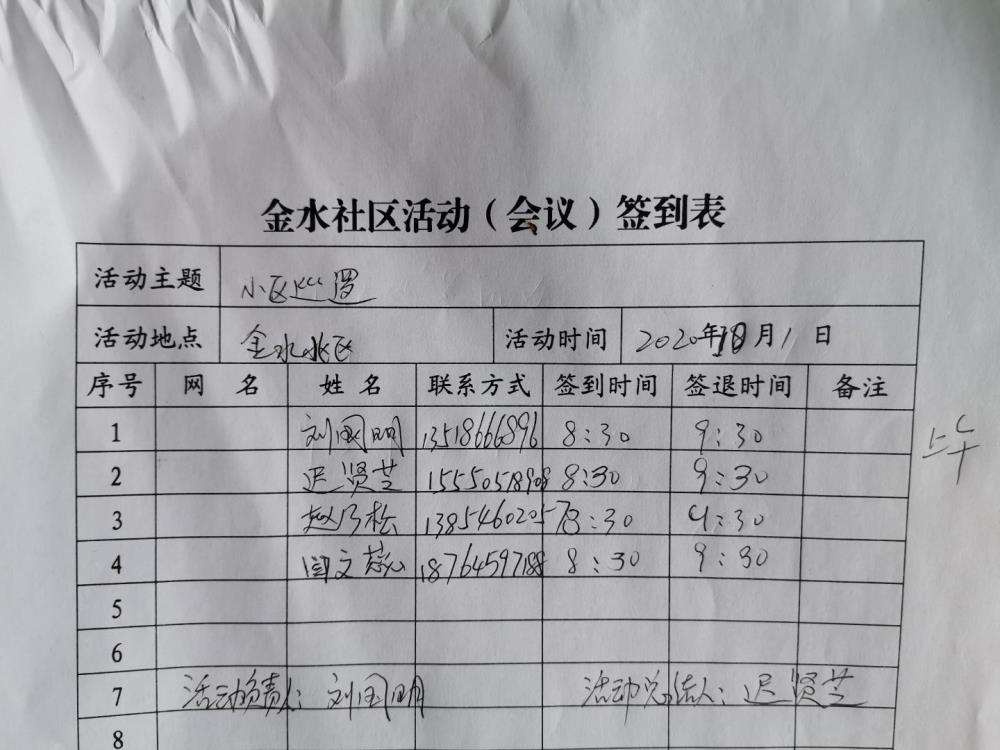 金水社区活动（会议）签到表
活动主题 小区巡逻
活动地点 金水小区 活动时间 2020年10月1日
序号 网 名 姓 名 联系方式 签到时间 签退时间 备注
1 刘国明 13518666896 8:30 9:30
2 迟贤芝 15550518908 8:30 9:30 上午
3 赵乃松 13854602057 8:30 9:30
4 闫文蕊 18764597188 8:30 9:30
5
6
7 活动负责人：刘国明 活动总结人：迟贤芝
8